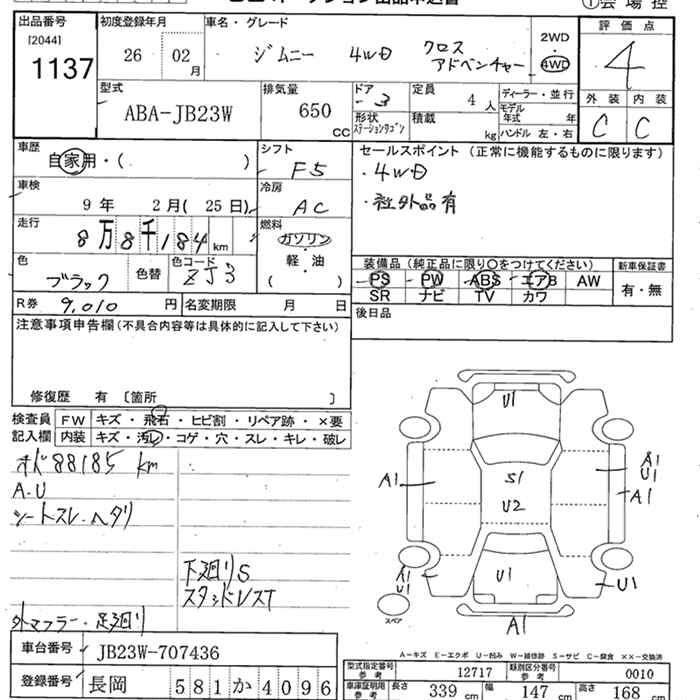 ① 会場控
出品番号
[2044]
1137
初度登録年月
26 02 月
車名・グレード
ジムニー 4WD クロス
アドベンチャー
2WD
4WD
評価点
4
型式
ABA-JB23W
排気量
650 CC
ドア
-3
形状
ステーションワゴン
定員
4 人
積載
kg
ディーラー・並行
モデル
年式 年
ハンドル 左・右
外装 内装
C C
車歴
自家用・( )
シフト
F5
セールスポイント (正常に機能するものに限ります)
・4WD
・社外品有
車検
9年 2月( 25日)
冷房
AC
走行
8万8千184 km
燃料
ガソリン
軽・油
( )
色
ブラック
色替
色コード
ZJ3
装備品 (純正品に限り○をつけてください)
PS PW ABS エアB AW
SR ナビ TV カワ
新車保証書
有・無
R券 9,010 円
名変期限 月 日
後日品
注意事項申告欄(不具合内容等は具体的に記入して下さい)
修復歴 有 〔箇所 〕
検査員
記入欄
FW キズ・飛石・ヒビ割・リペア跡・×要
内装 キズ・汚れ・コゲ・穴・スレ・キレ・破レ
オド88185 km
A.U
シートスレ.ヘタリ
下廻りS
スタッドレスT
外マフラー・足廻り
U1
A1
S1
U2
A1
U1
A1
U1
A1
U1
U1
A1
スペア
A−キズ E−エクボ U−凹み W−補修跡 S−サビ C−腐食 ××−交換済
車台番号 JB23W-707436
登録番号 長岡 581か4096
型式指定番号
参考
12717
類別区分番号
参考
0010
車庫証明用
参考
長さ 339 cm
幅 147 cm
高さ 168 cm